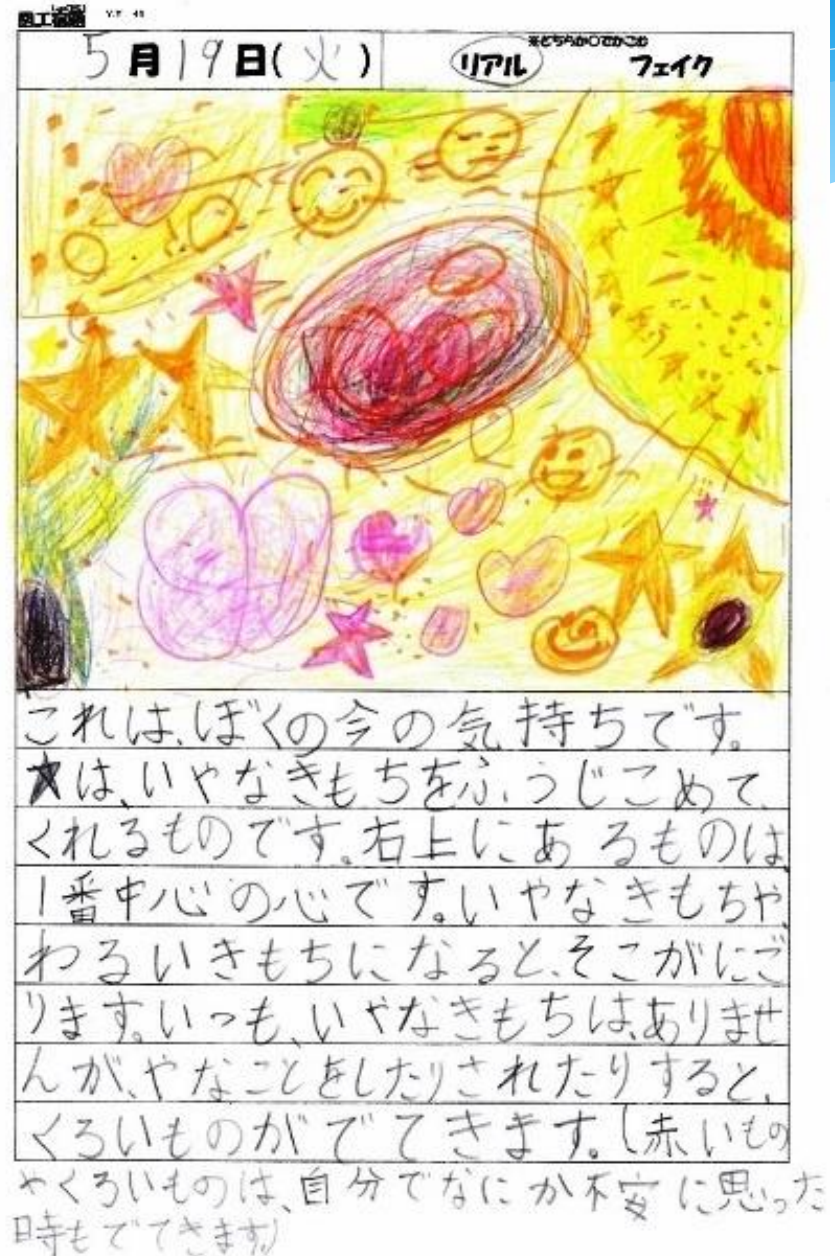 図工宿題
5月19日(火) リアル ※どちらか○でかこむ フェイク
これは、ぼくの今の気持ちです。
★は、いやなきもちをふうじこめて、
くれるものです。右上にあるものは、
1番中心の心です。いやなきもちや、
わるいきもちになると、そこがにご
ります。いっも、いやなきもちは、ありませ
んが、やなことをしたりされたりすると、
くろいものがでてきます。(赤いもの
やくろいものは、自分でなにか不安に思った
時もでてきます。)